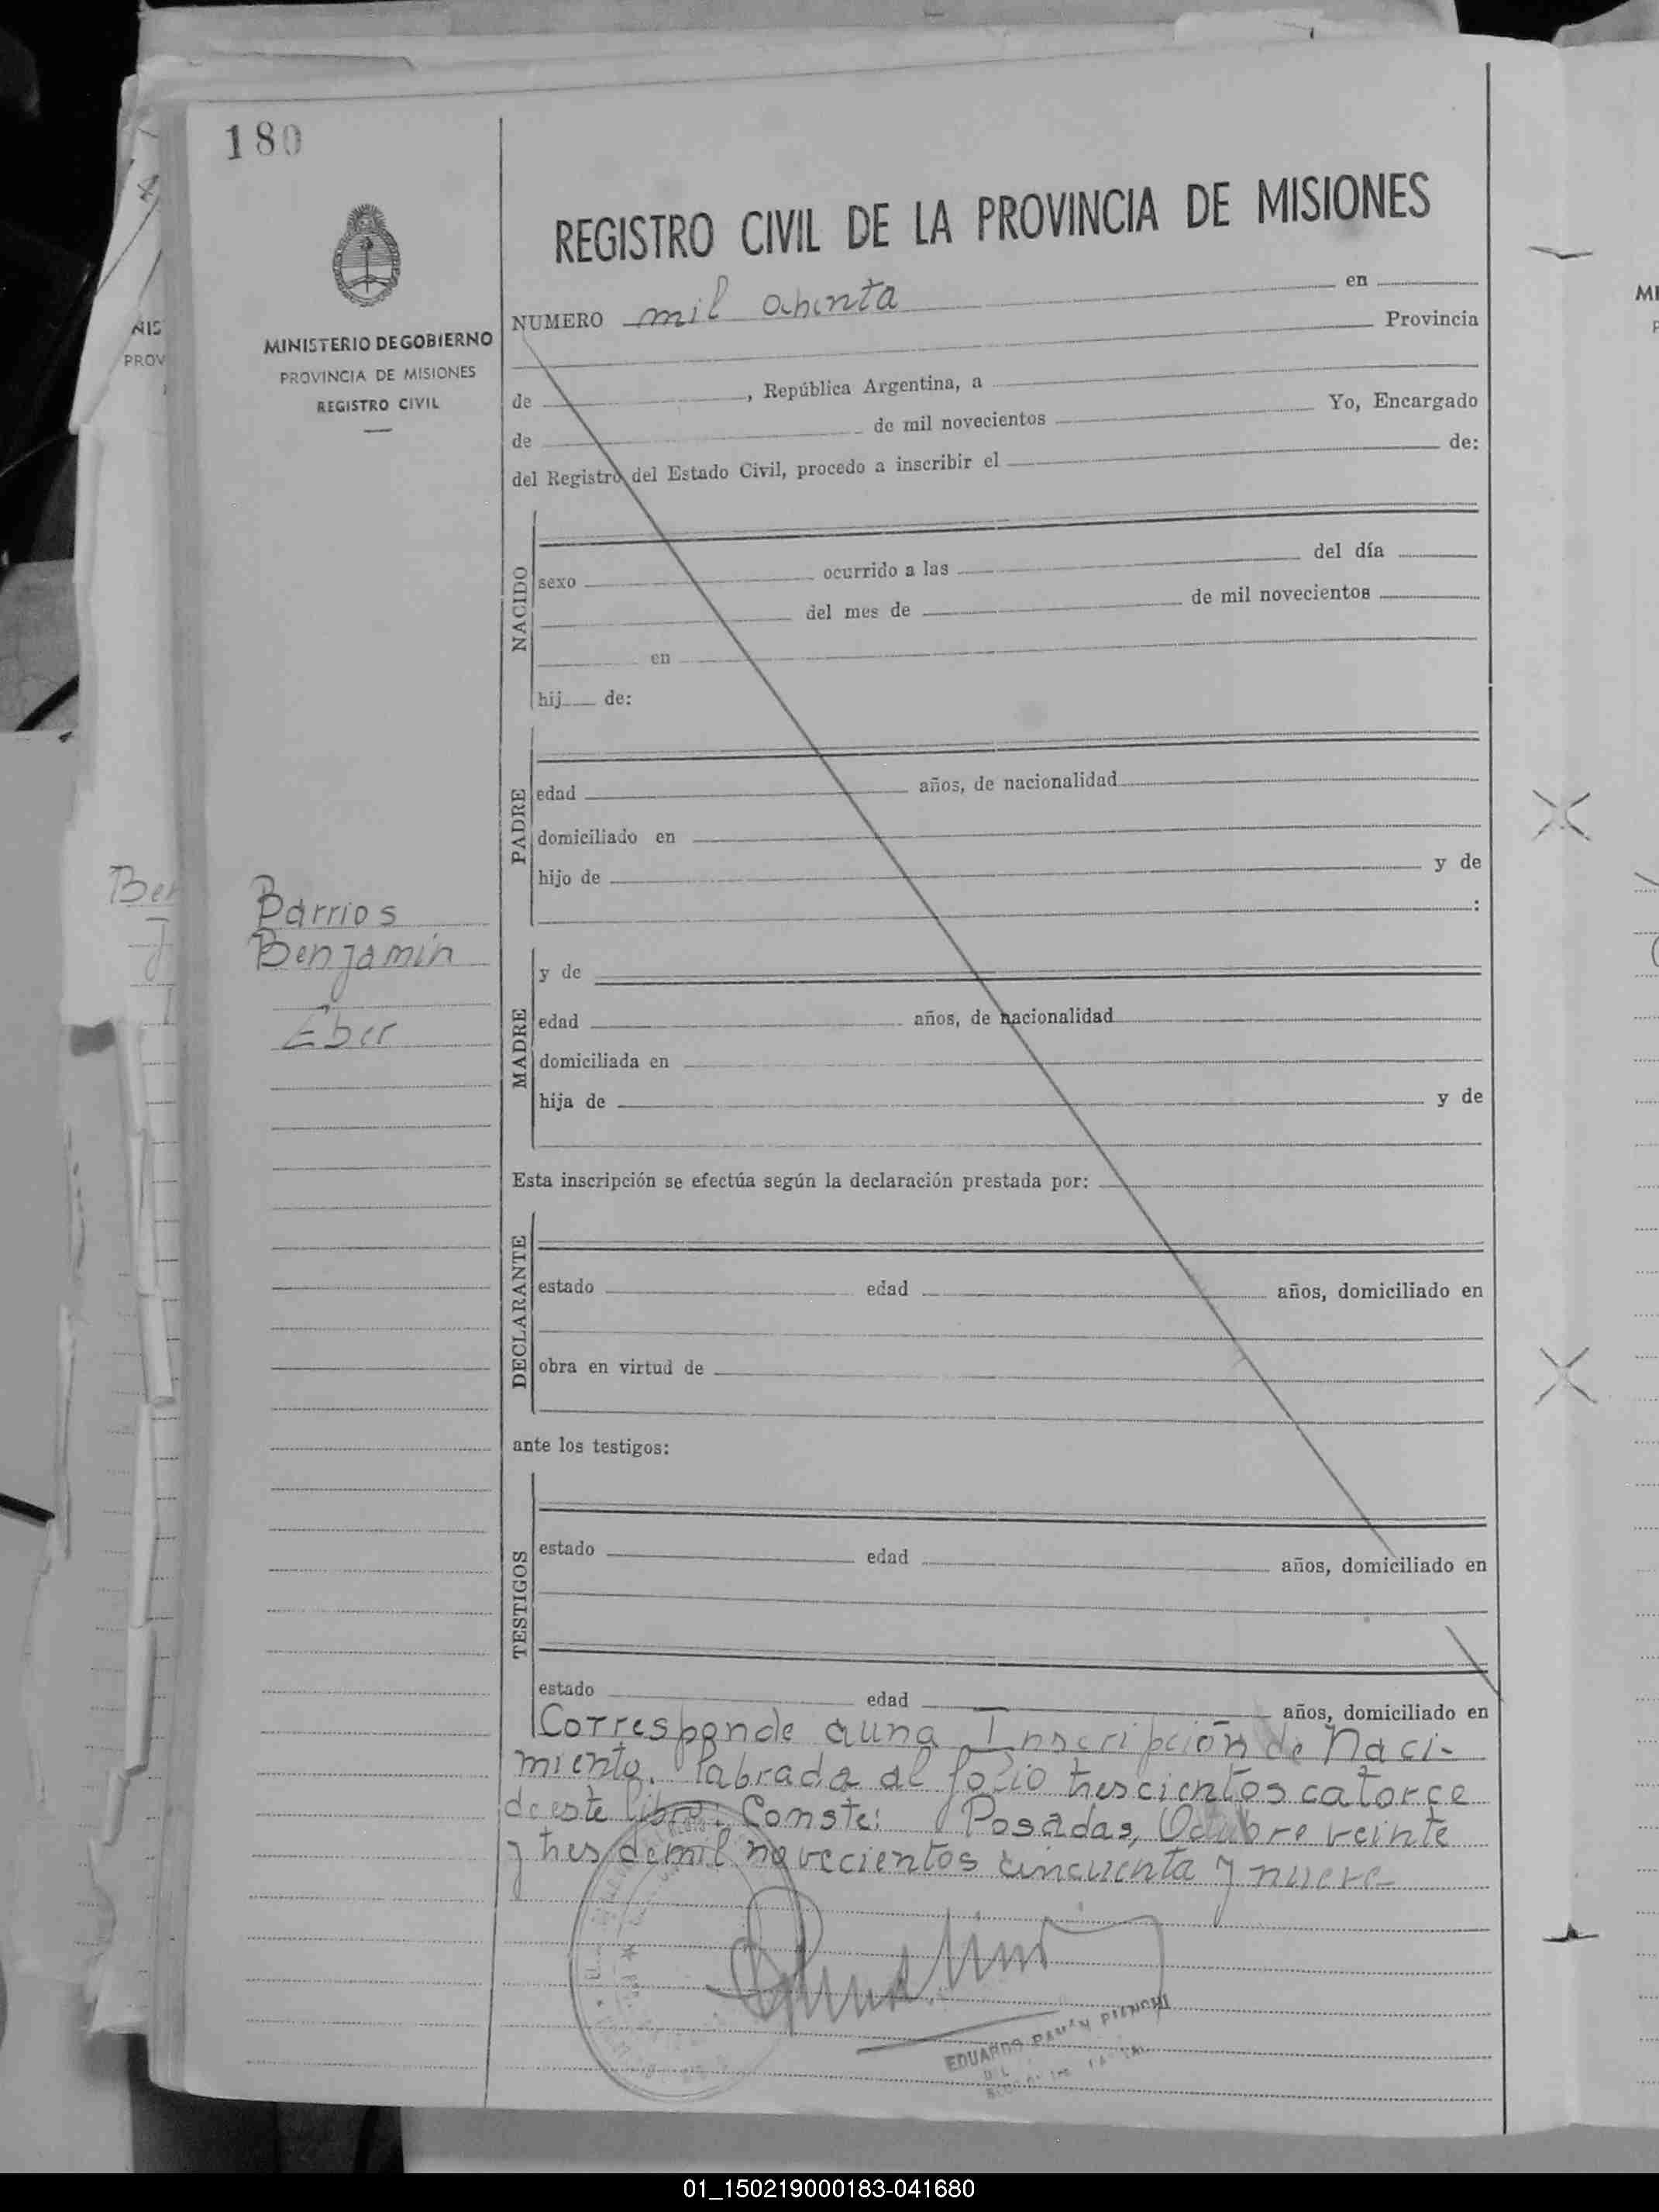 180
MINISTERIO DE GOBIERNO
PROVINCIA DE MISIONES
REGISTRO CIVIL
Barrios
Benjamín
Eber
REGISTRO CIVIL DE LA PROVINCIA DE MISIONES
NUMERO mil ochenta en
Provincia
de , República Argentina, a
de de mil novecientos Yo, Encargado
del Registro del Estado Civil, procedo a inscribir el de:
NACIDO
sexo ocurrido a las del día
del mes de de mil novecientos
en
hij de:
PADRE
edad años, de nacionalidad
domiciliado en
hijo de y de
:
MADRE
y de
edad años, de nacionalidad
domiciliada en
hija de y de
Esta inscripción se efectúa según la declaración prestada por:
DECLARANTE
estado edad años, domiciliado en
obra en virtud de
ante los testigos:
TESTIGOS
estado edad años, domiciliado en
estado edad años, domiciliado en
Corresponde a una Inscripción de Naci-
miento. labrada al folio trescientos catorce
de este libro: Conste: Posadas, Octubre veinte
y tres de mil novecientos cincuenta y nueve
EDUARDO RAMÓN
01_150219000183-041680